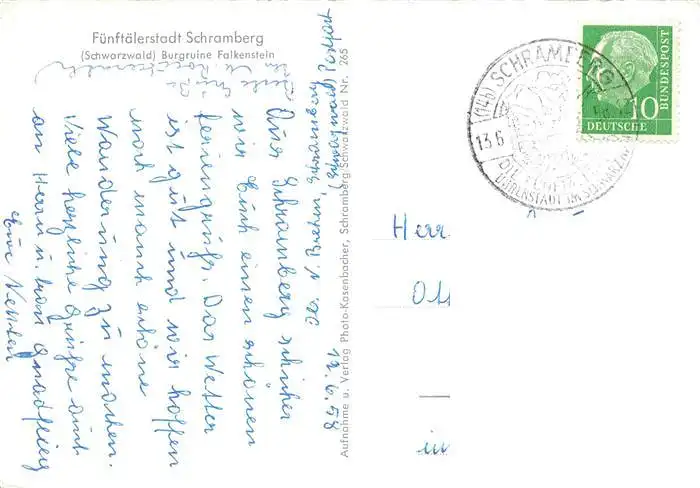 Fünftälerstadt Schramberg
(Schwarzwald) Burgruine Falkenstein
Schramberg
(Schwarzwald) Postfort
12.6.58
Aus Schramberg schicken
wir Euch einen schönen
Feriengruß. Das Wetter
ist gut und wir hoffen
noch manch schöne
Wanderung zu machen.
Viele herzliche Grüße auch
an Herrn u. Frau
Eure
Aufnahme u. Verlag Photo-Kasenbacher, Schramberg-Schwarzwald Nr. 265
(14b) SCHRAMBERG
13.6
DIE FÜNF
TÄLERSTADT IM SCHWARZW
10
DEUTSCHE
BUNDESPOST
Herr
Ott
in